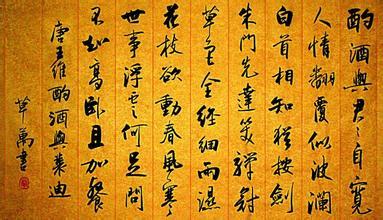 酌酒與君々自寬
人情翻覆似波瀾
白首相知猶按劍
朱門先達笑彈冠
草色全經細雨濕
花枝欲動春風寒
世事浮雲何足問
不如高卧且加餐
唐王維酌酒與裴迪
華萬書